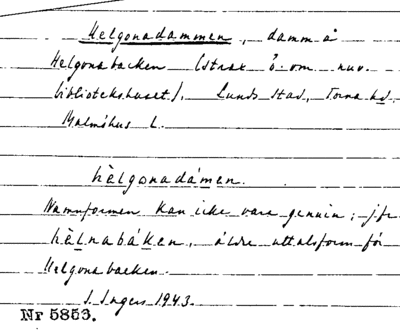 Helgonadammen, damm å
Helgonabacken (strax ö. om nuv.
bibliotekshuset), Lunds stad, Torna hd
Malmöhus l.
hèlgonadámen.
Namnformen kan icke vara genuin; jfr
hèlnabáken, äldre uttalsform för
Helgonabacken.
I. Ingers 1943.
Nr 5853.